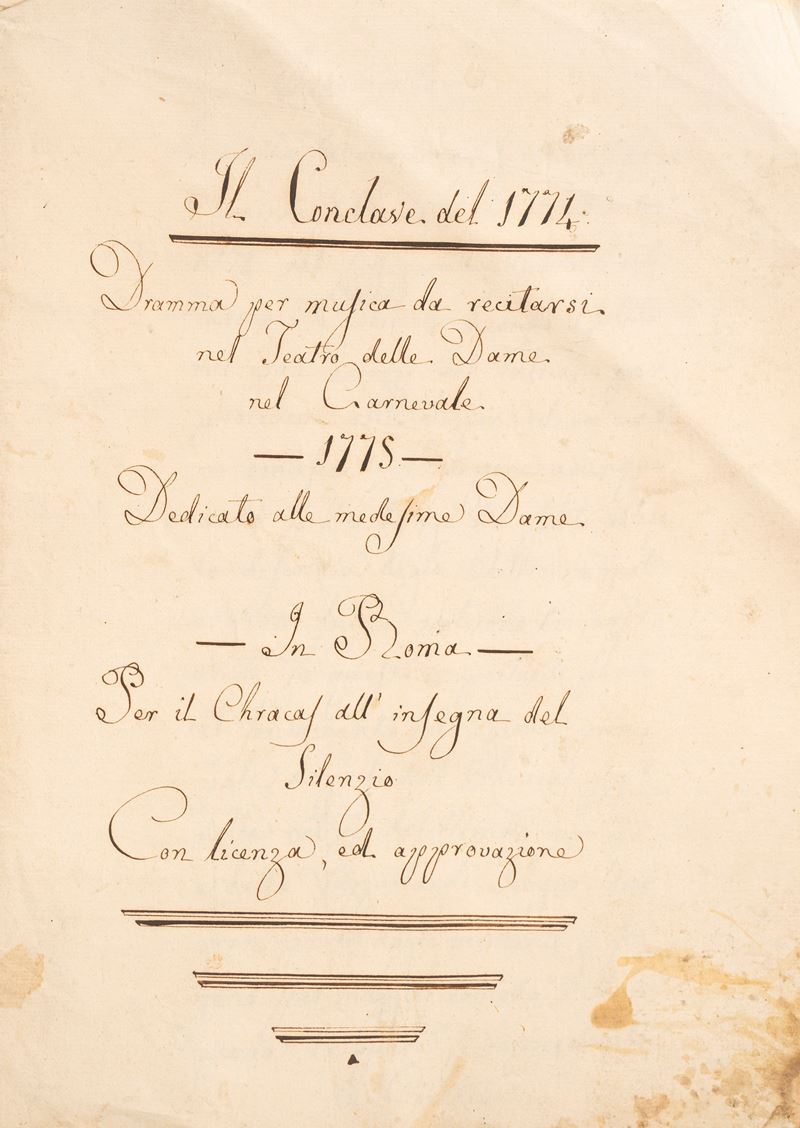 Il Conclave del 1774.
Dramma per musica da recitarsi
nel Teatro delle Dame
nel Carnevale
— 1775 —
Dedicato alle medesime Dame
— In Roma —
Per il Chracas all' insegna del
Silenzio
Con licenza, ed approvazione